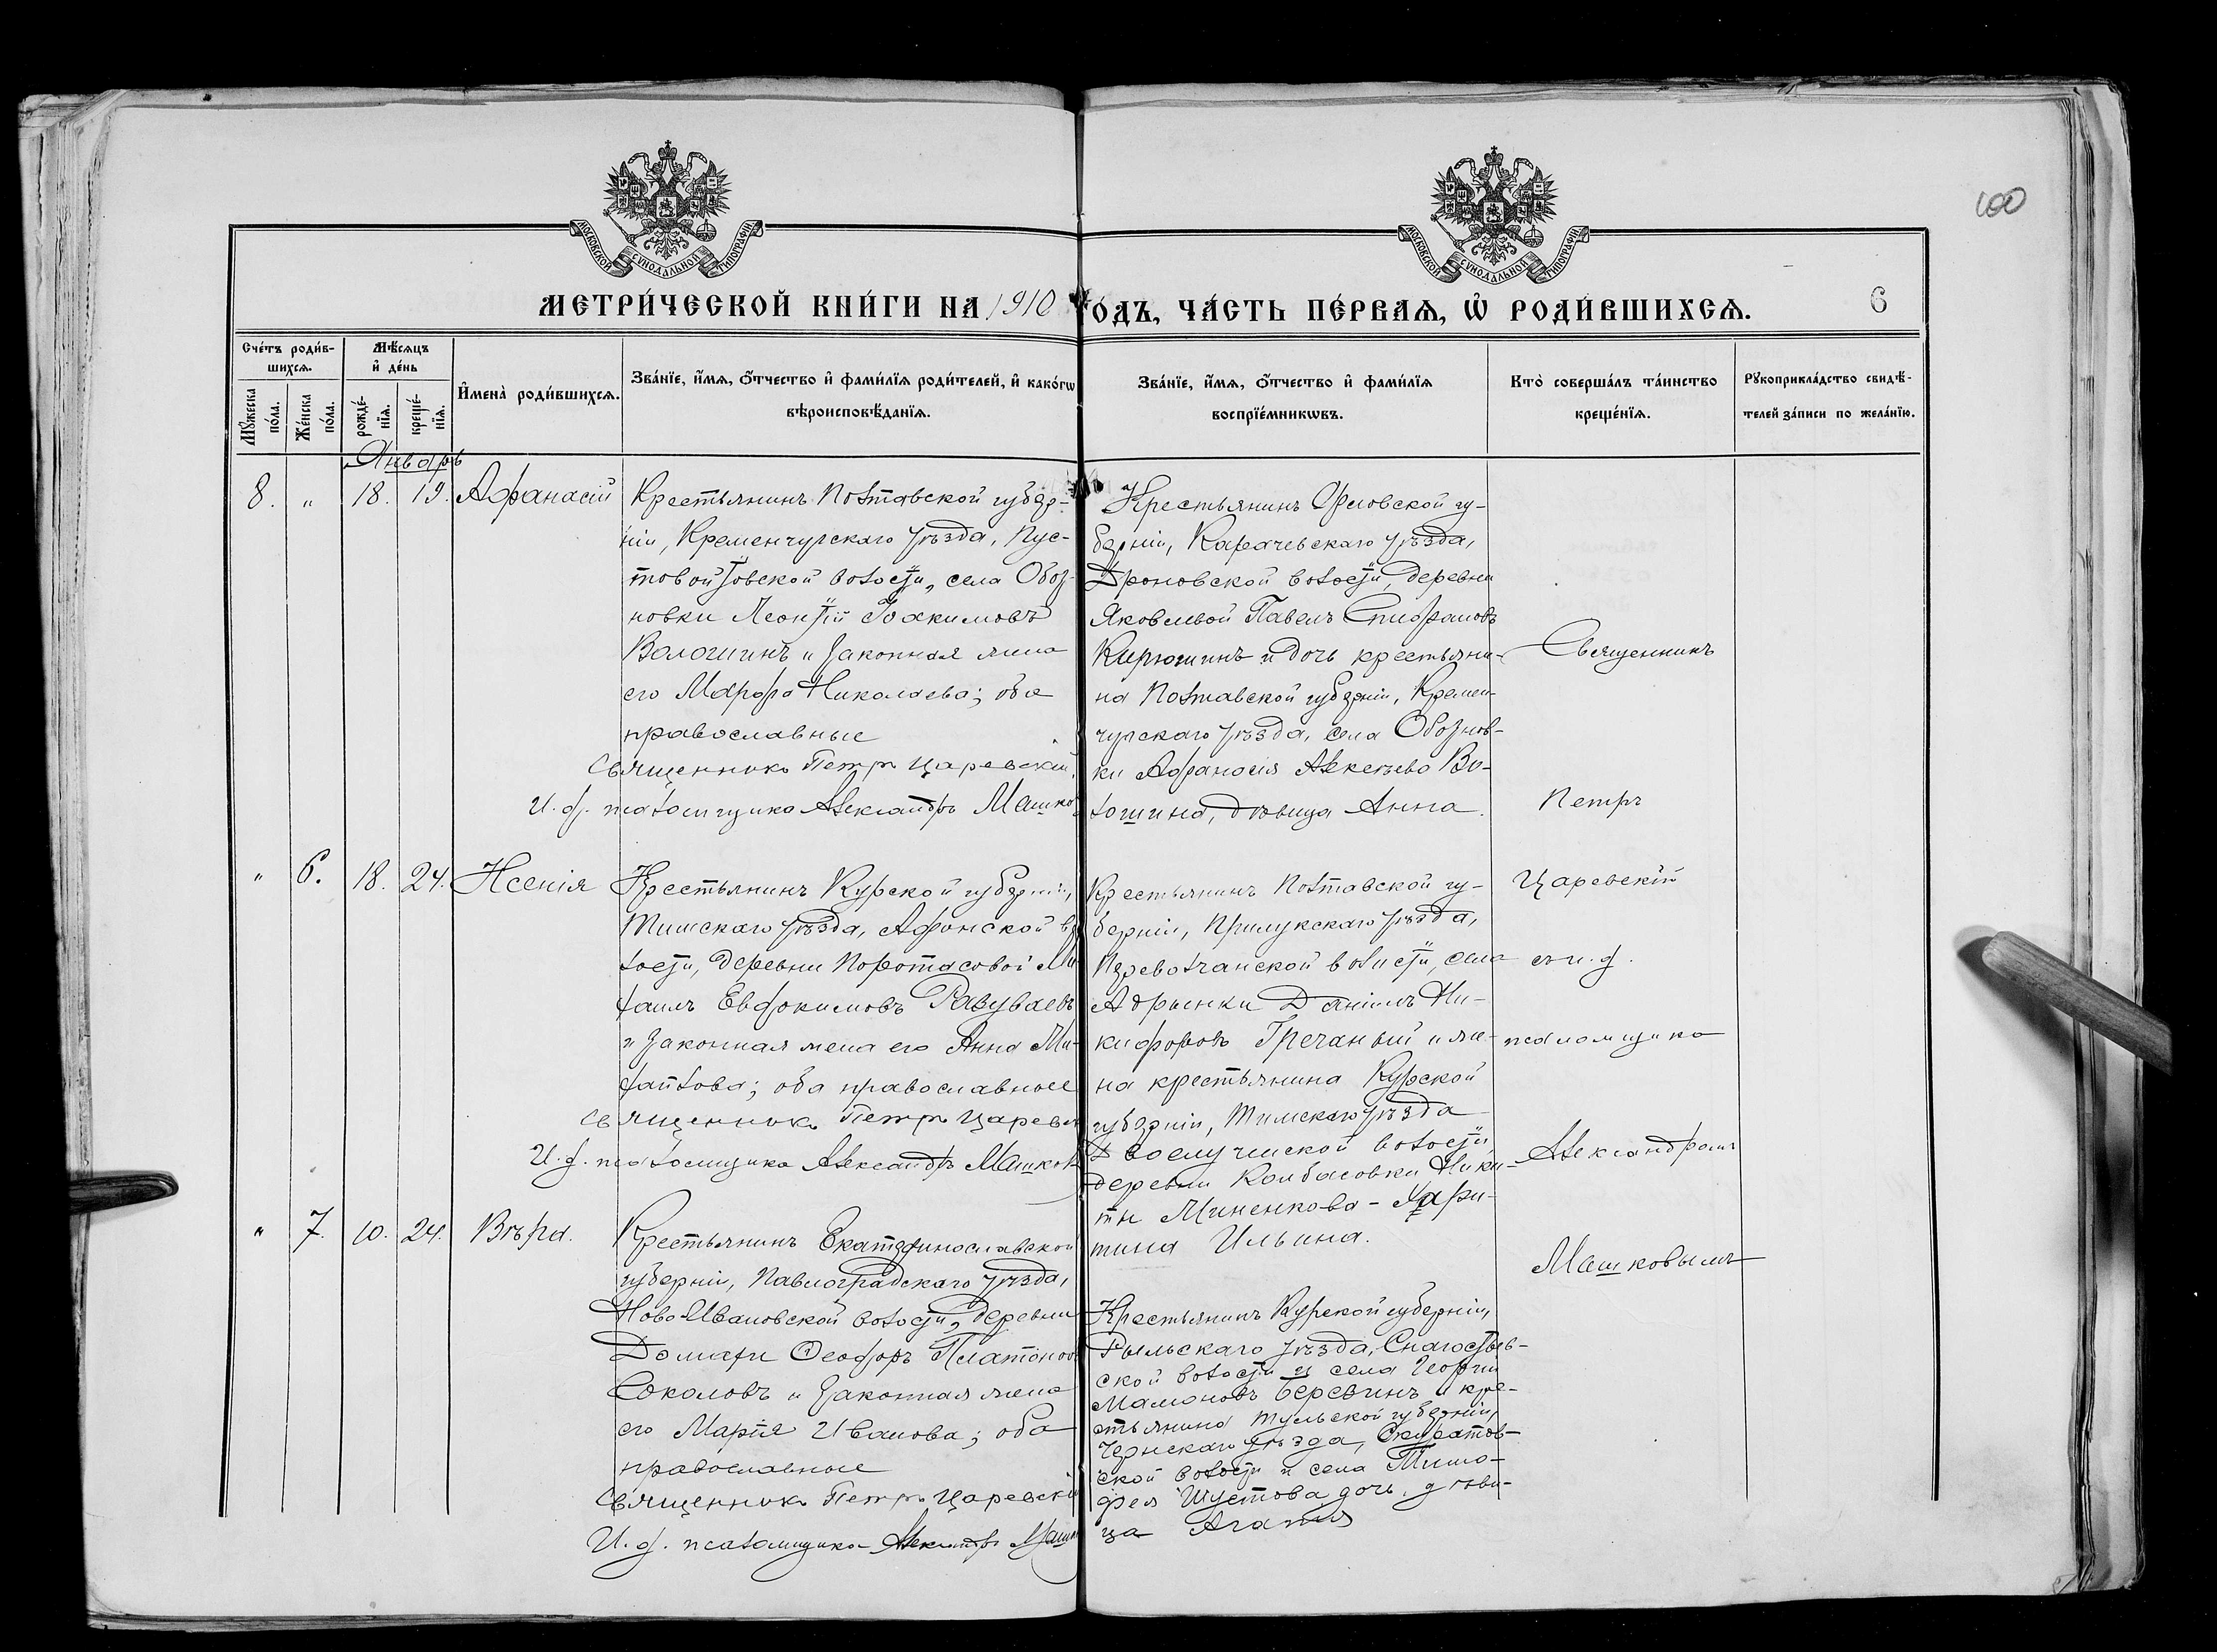 100
МОСКОВСКОЙ СѴНОДАЛЬНОЙ ТИПОГРАФІИ
МОСКОВСКОЙ СѴНОДАЛЬНОЙ ТИПОГРАФІИ
МЕТРИ́ЧЕСКОЙ КНИ́ГИ НА 1910 ГО́ДЪ, ЧА́СТЬ ПЕ́РВАѦ, Ѡ҆ РОДИ́ВШИХСѦ. 6
Сче́тъ роди́вшихсѧ.
Мꙋ́жеска по́ла.
Же́нска по́ла.
Мѣ́сѧцъ и҆ де́нь
рожде́нїѧ.
креще́нїѧ.
И҆мена̀ роди́вшихсѧ.
Зва́нїе, и҆́мѧ, ѻ҆́тчество и҆ фами́лїѧ роди́телей, и҆ како́гѡ
вѣроисповѣ́данїѧ.
Зва́нїе, и҆́мѧ, ѻ҆́тчество и҆ фами́лїѧ
воспрїе́мникѡвъ.
Кто̀ соверша́лъ та́инство
креще́нїѧ.
Рꙋкоприкла́дство свидѣ́-
телей за́писи по жела́нїю.
Январь
8. " 18. 19. Афанасій
Крестьянинъ Полтавской губер-
ніи, Кременчугскаго уѣзда, Пус-
товойтовской волости, села Обоз-
новки Леонтій Іоакимовъ
Волошинъ и законная жена
его Марфа Николаева; оба
православные
Священникъ Петръ Царевскій.
И. д. псаломщика Александръ Машков
Крестьянинъ Орловской гу-
берніи, Карачевскаго уѣзда,
Дроновской волости, деревни
Яковлевой Павелъ Епифановъ
Кирюшинъ и дочь крестьяни-
на Полтавской губерніи, Кремен-
чугскаго уѣзда, села Обознов-
ки Афанасія Алексѣева Во-
лошина, дѣвица Анна.
Священникъ
Петръ
Царевскій
съ и. д.
псаломщика
Александромъ
Машковымъ
" 6. 18. 24. Ксенія
Крестьянинъ Курской губерніи,
Тимскаго уѣзда, Афонской во
лости, деревни Поротасовой Ми
хаилъ Евфокимовъ Разуваевъ
и законная жена его Анна Ми-
хайлова; оба православные
Священникъ Петръ Царевск
И. д. псаломщика Александръ Машков
Крестьянинъ Полтавской гу-
берніи, Прилукскаго уѣзда,
Переволчанской волости, села
Даніилъ Ни-
кифоровъ Гречаный и же-
на крестьянина Курской
губерніи, Тимскаго уѣзда
волости,
деревни Колбасовки Ники-
ты Миненкова - Хари-
тина Ильина.
" 7. 10. 24. Вѣра.
Крестьянинъ Екатеринославской
губерніи, Павлоградскаго уѣзда,
Ново-Ивановской волости, деревни
Домахи Ѳеодоръ Платонов
Соколовъ и законная жена
его Марія Иванова; оба
православные
Священникъ Петръ Царевскій
И. д. псаломщика Александръ Машк
Крестьянинъ Курской губерніи,
Рыльскаго уѣзда, Снагостьев-
ской волости и села Георгій
Мамоновъ и кре-
стьянина Тульской губерніи,
Чернскаго уѣзда, Скуратов-
ской волости и села Тимо-
фея Шустова дочь, дѣви-
ца Агапія